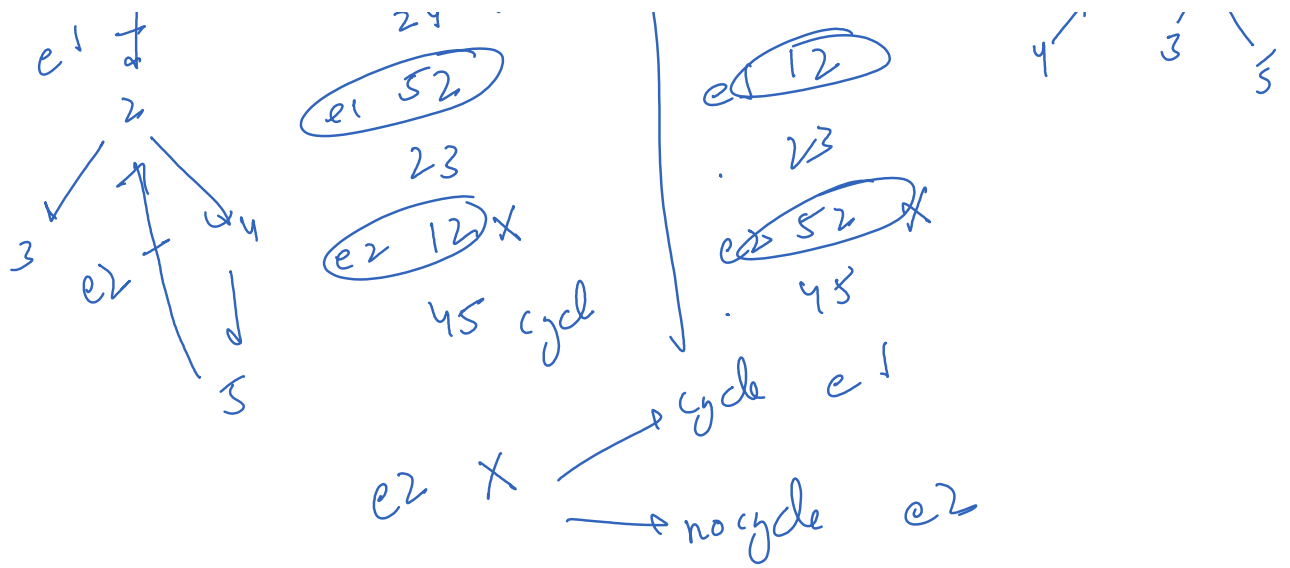 e1
2
3
4
e2
5
24
e1 52
23
e2 12 X
45 cycle
e1 12
23
e2 52 X
45
4 3 5
e2 X
cycle e1
no cycle e2